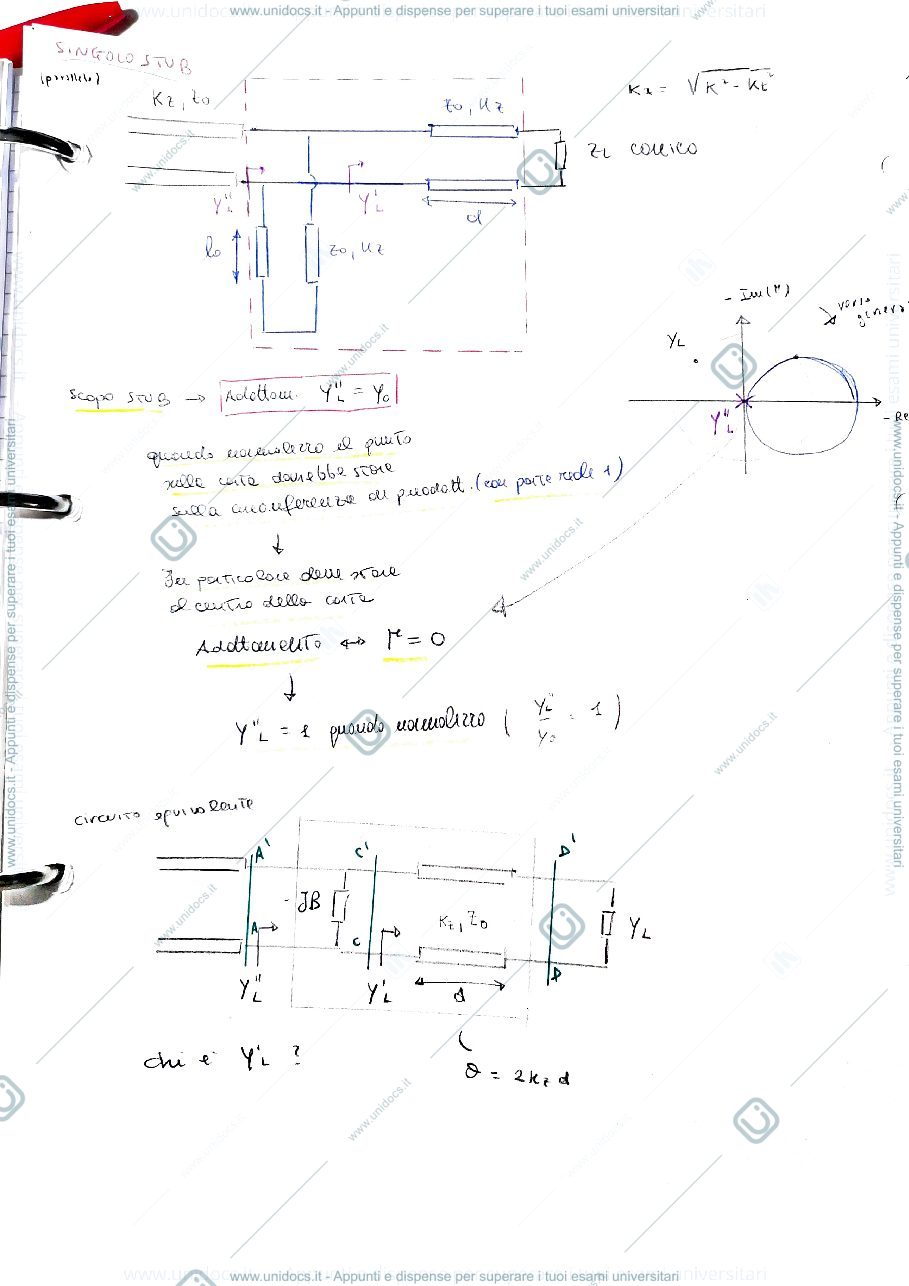 www.unidocs.it - Appunti e dispense per superare i tuoi esami universitari
SINGOLO STUB
(parallelo)
Kz, Z0
Z0, Kz
Kx = √K² - Kt²
ZL carico
Y''L
Y'L
d
l0
Z0, Kz
- Im(Γ)
vario
YL
Y''L
- Re
Scopo STUB → Adattam. Y''L = Y0
quando normalizzo il punto
sulla carta dovrebbe stare
sulla circonferenza di prodott. (con parte reale 1)
↓
In particolare deve stare
al centro della carta
Adattamento ↔ Γ = 0
↓
Y''L = 1 quando normalizzo ( Y''L / Y0 = 1 )
circuito equivalente
A'
C'
D'
JB
Kz, Z0
YL
A
C
D
Y''L
Y'L
d
chi è Y'L ?
θ = 2kz d
www.unidocs.it - Appunti e dispense per superare i tuoi esami universitari